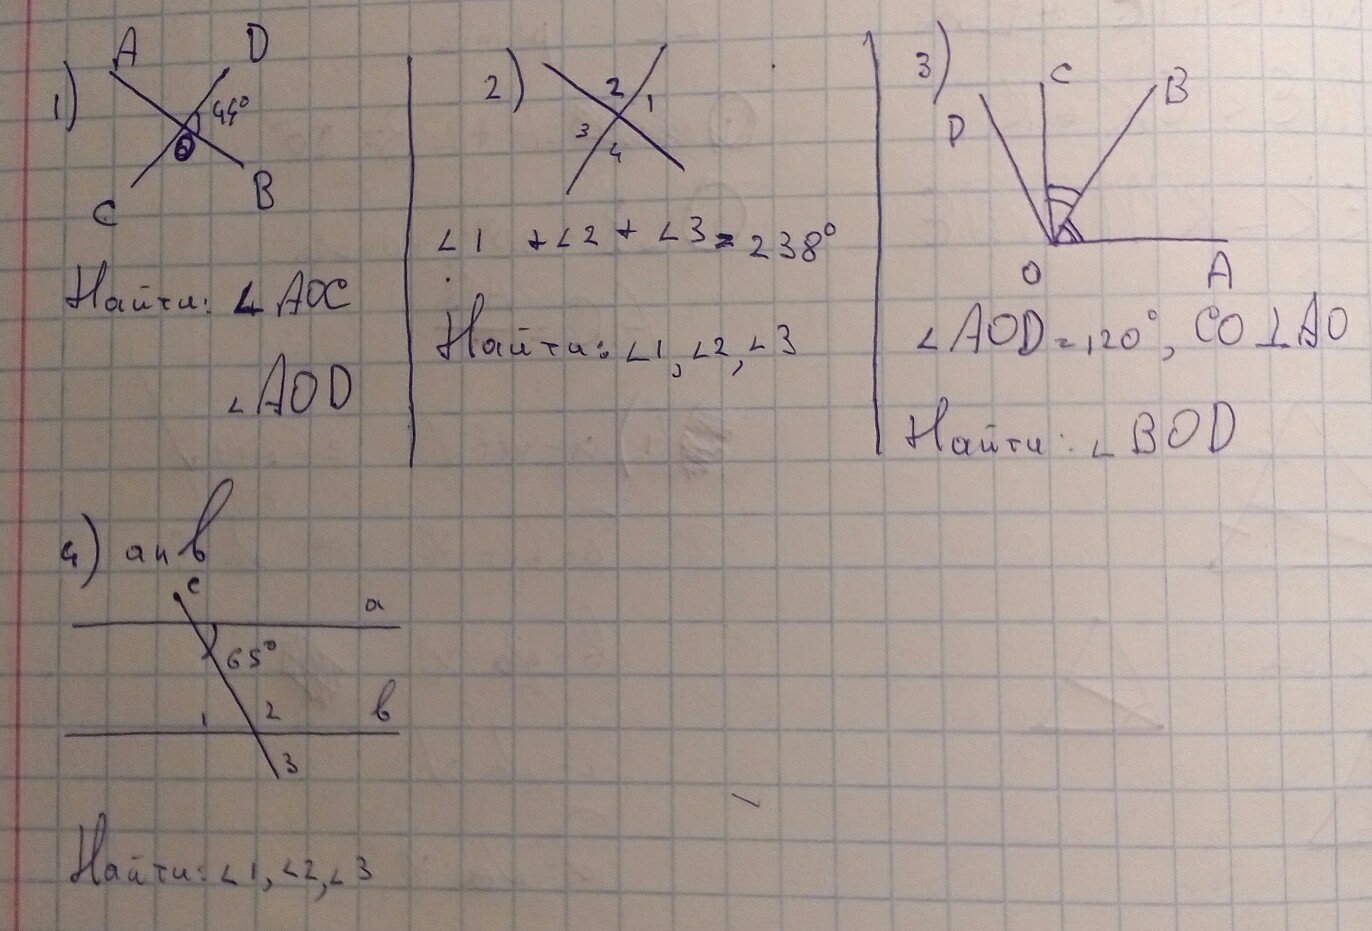 1)
A
D
44°
O
C
B
Найти: ∠AOC
∠AOD
2)
2
1
3
4
∠1 + ∠2 + ∠3 = 238°
Найти: ∠1, ∠2, ∠3
3)
D
C
B
O
A
∠AOD = 120°, CO ⊥ AO
Найти: ∠BOD
4) a и b
c
a
65°
1
2
b
3
Найти: ∠1, ∠2, ∠3